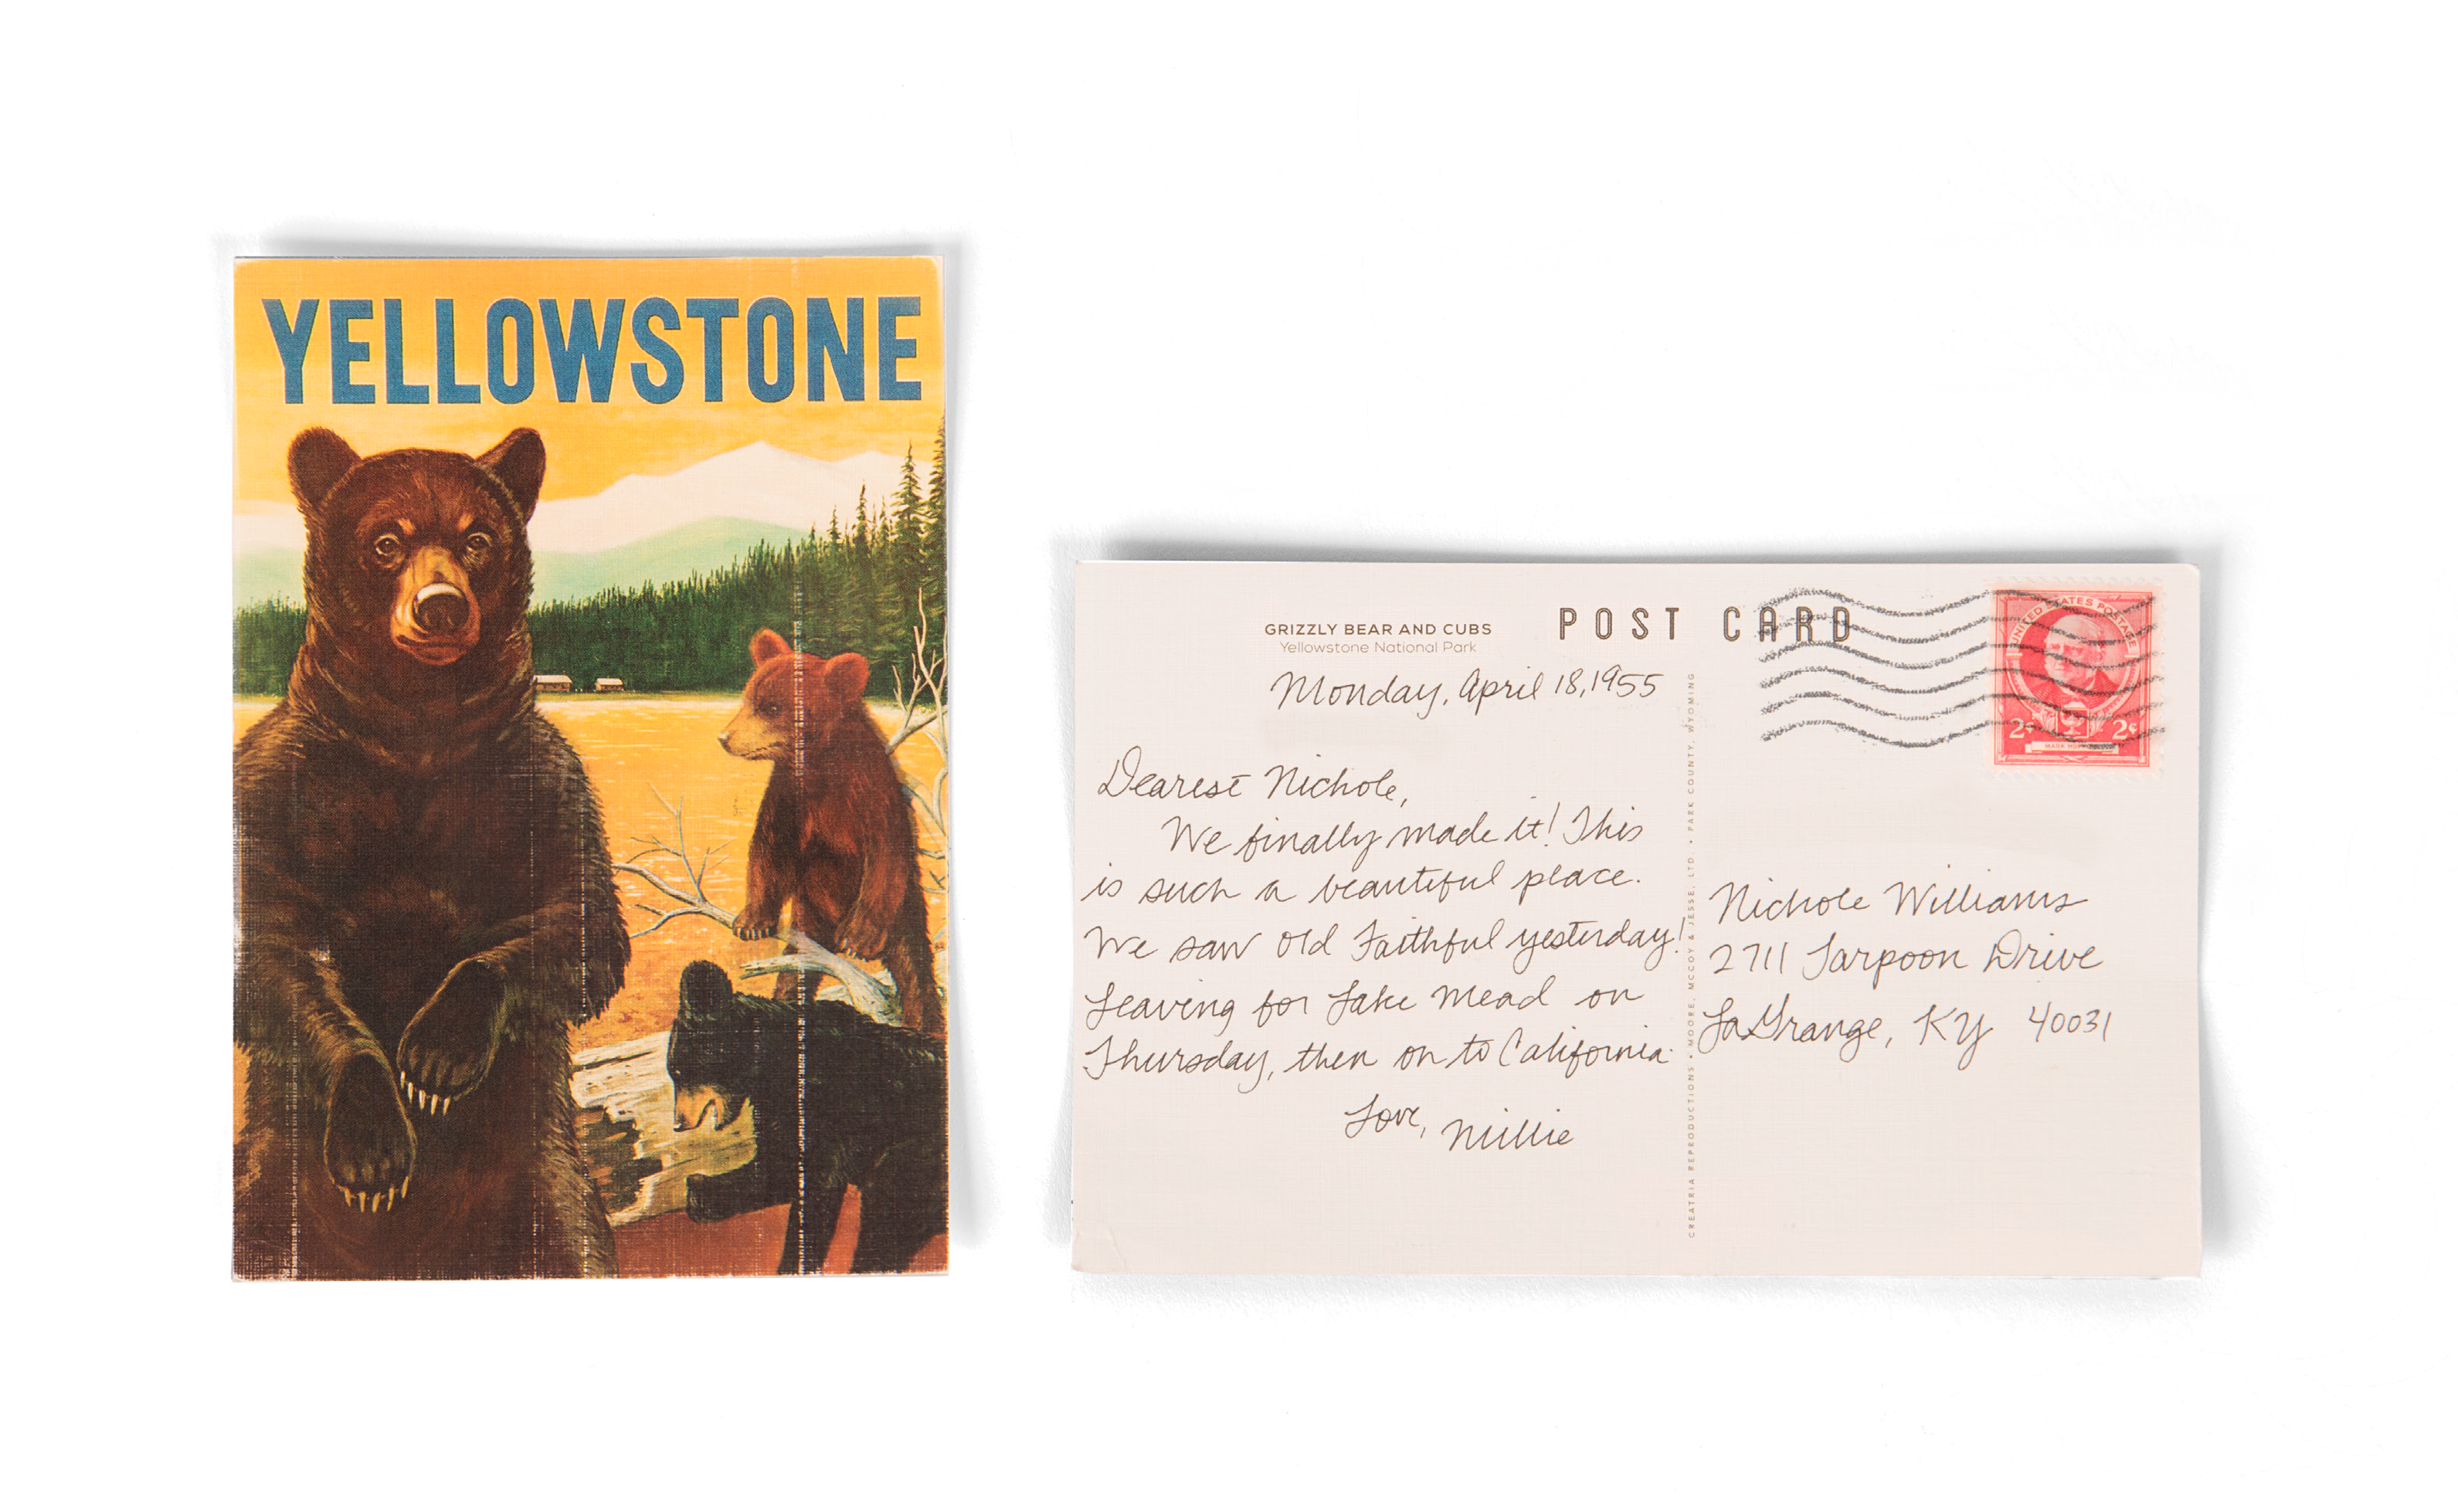 YELLOWSTONE
GRIZZLY BEAR AND CUBS
Yellowstone National Park
POST CARD
Monday, April 18, 1955
Dearest Nichole,
We finally made it! This
is such a beautiful place.
We saw Old Faithful yesterday!
Leaving for Lake Mead on
Thursday, then on to California.
Love, Millie
CREATRIA REPRODUCTIONS • MOORE, MCCOY & JESSE, LTD • PARK COUNTY, WYOMING
UNITED STATES POSTAGE
2¢ 2¢
MARK
Nichole Williams
2711 Tarpoon Drive
LaGrange, KY 40031